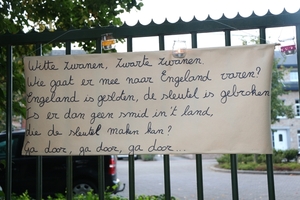 Witte zwanen, zwarte zwanen
Wie gaat er mee naar Engeland varen?
Engeland is gesloten, de sleutel is gebroken
Is er dan geen smid in 't land,
die de sleutel maken kan?
Ga door, ga door, ga door....